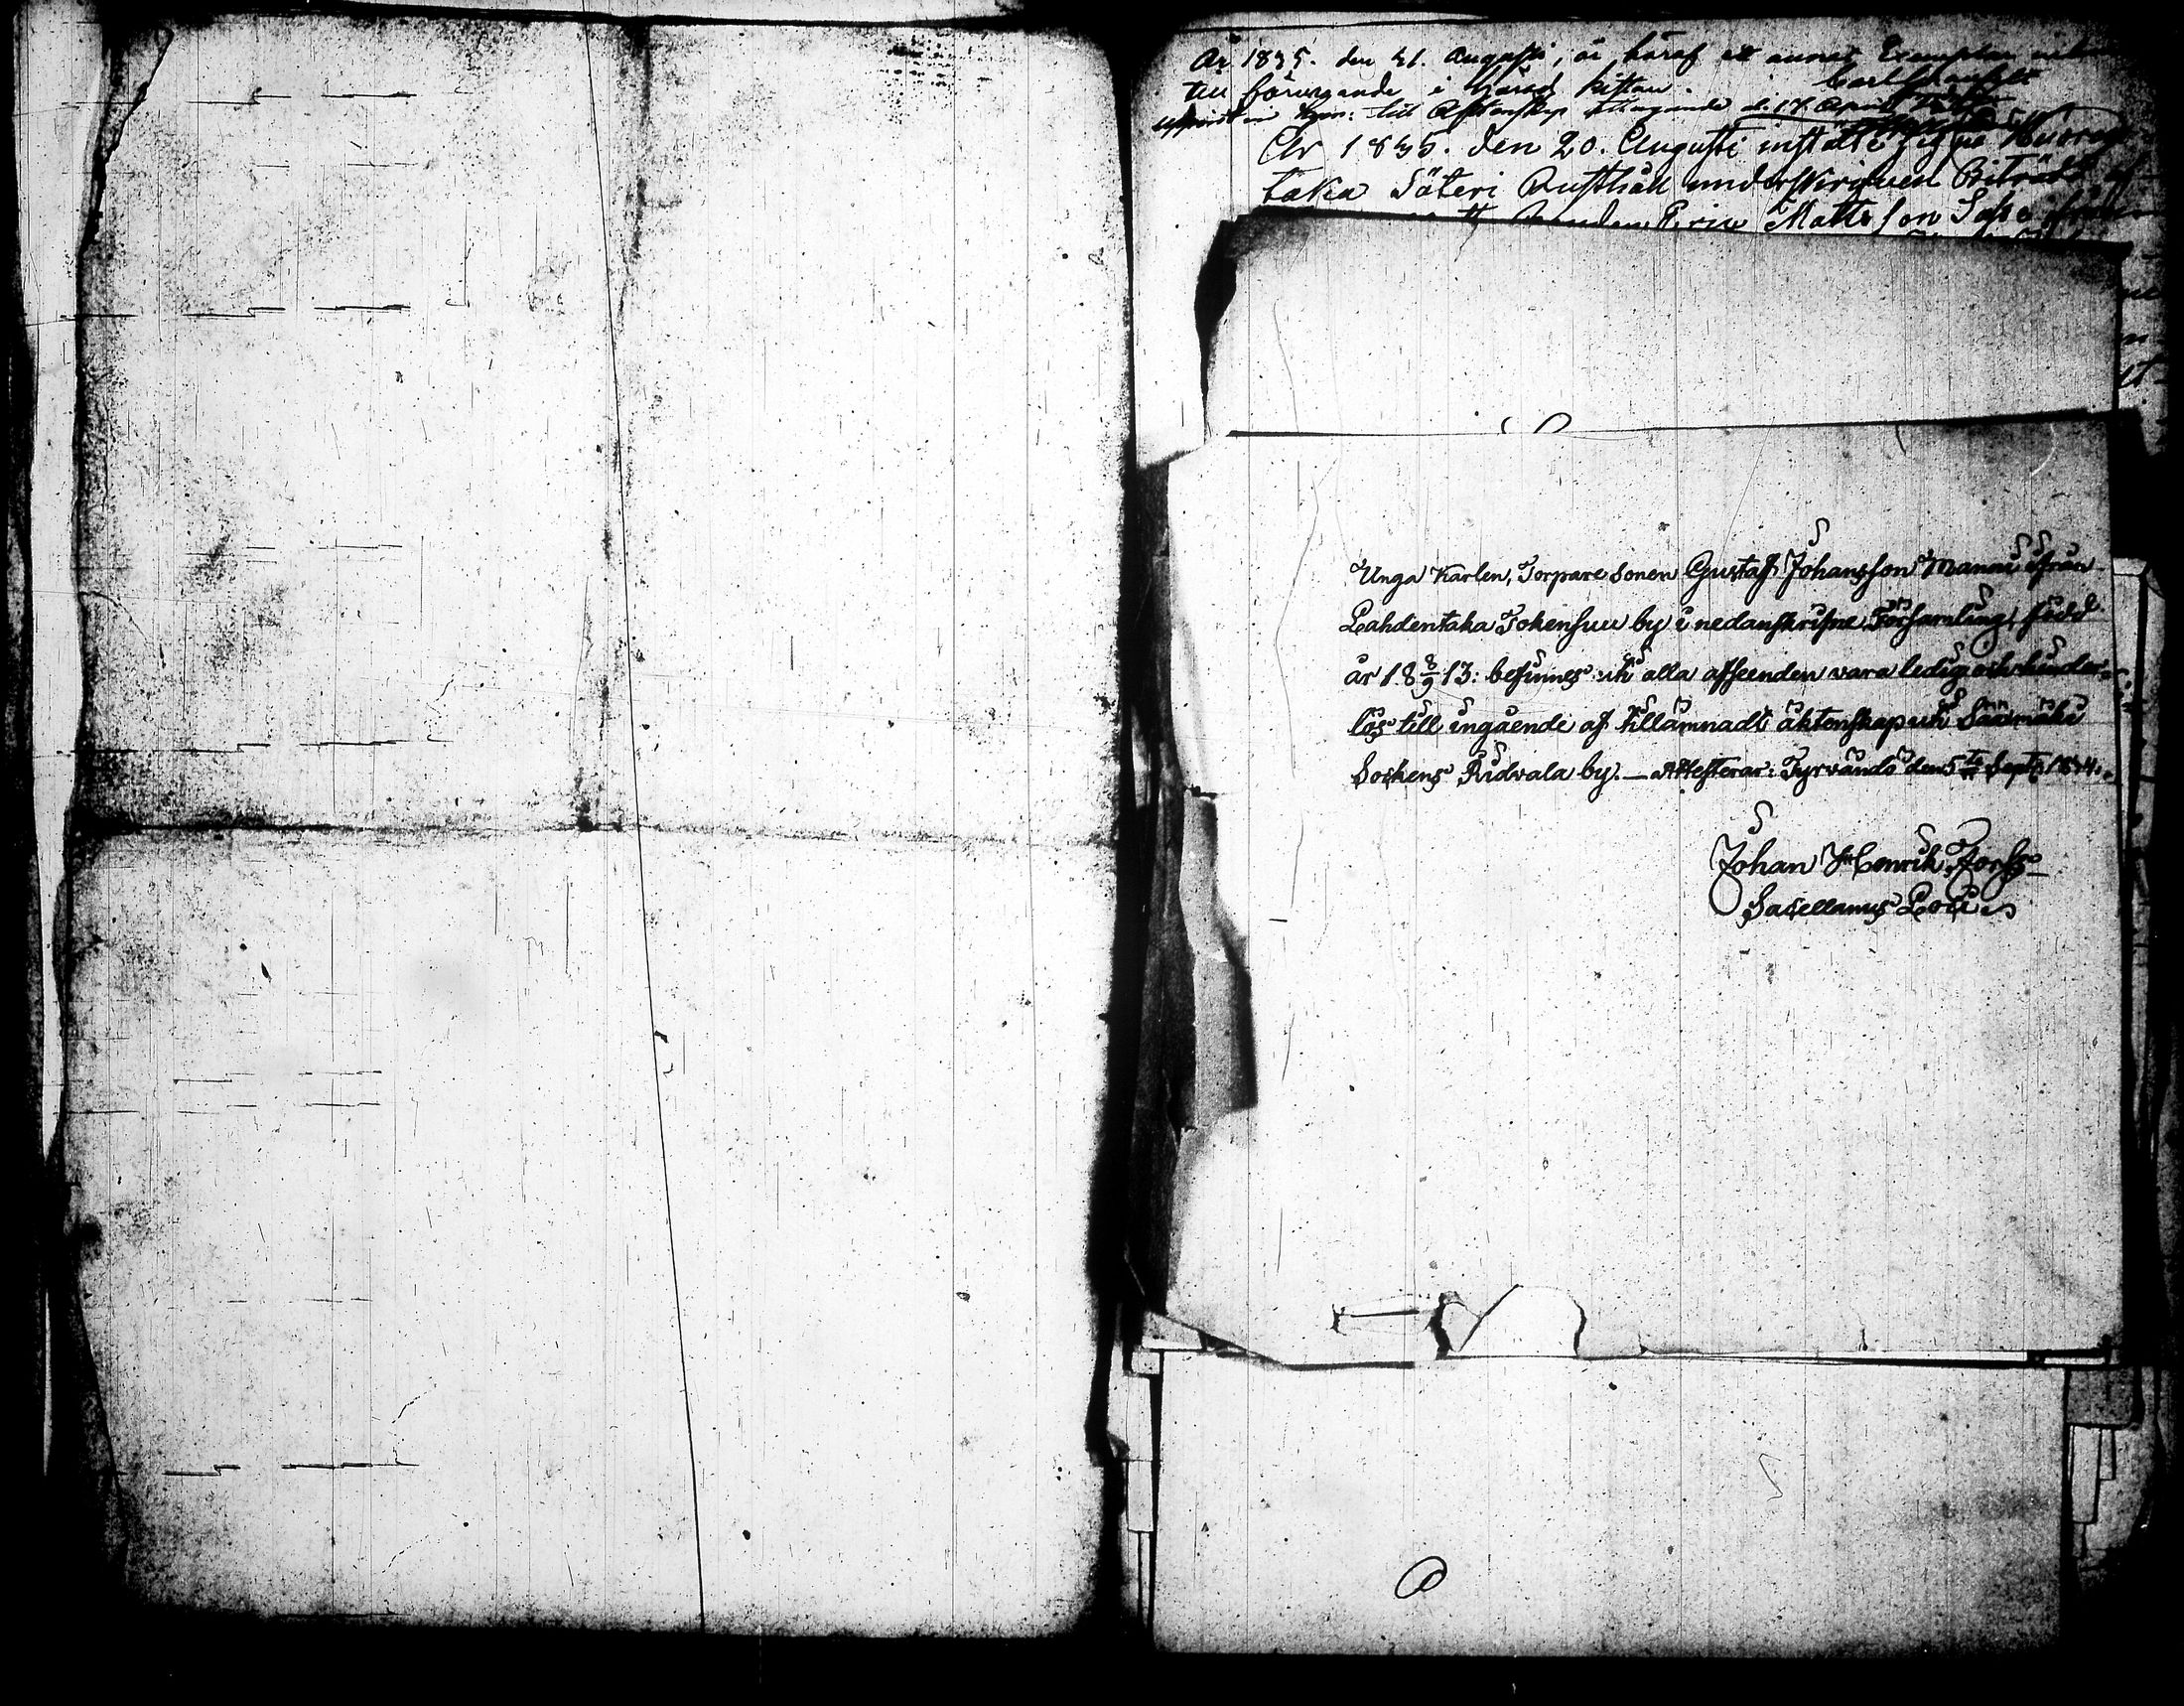 År 1835. den 21. Augusti, är häraf et annat Exemplar
till förvarande i Härads Kistan.
till Äktenskap d. 17. April
År 1835. den 20. Augusti instälte
taka Säteri Rusthåll underskrifven Biträdt af
Erik Mattsson Saxe ifrån
Unga Karlen, Torpare Sonen Gustaf Johansson Manni ifrån
Lahdentaka Tokensuu by i nedanskrifne Församling, född
år 18 8/9 13: befinnes i alla afseenden vara ledig och hinder-
lös till ingående af tillämnadt äktenskap i Sääxmäki
Sockens Ridvala by. — Attesterar: Tyrvändö den 5te Sept. 1834.
Johan Henrik Forss
Sacellanus Loci